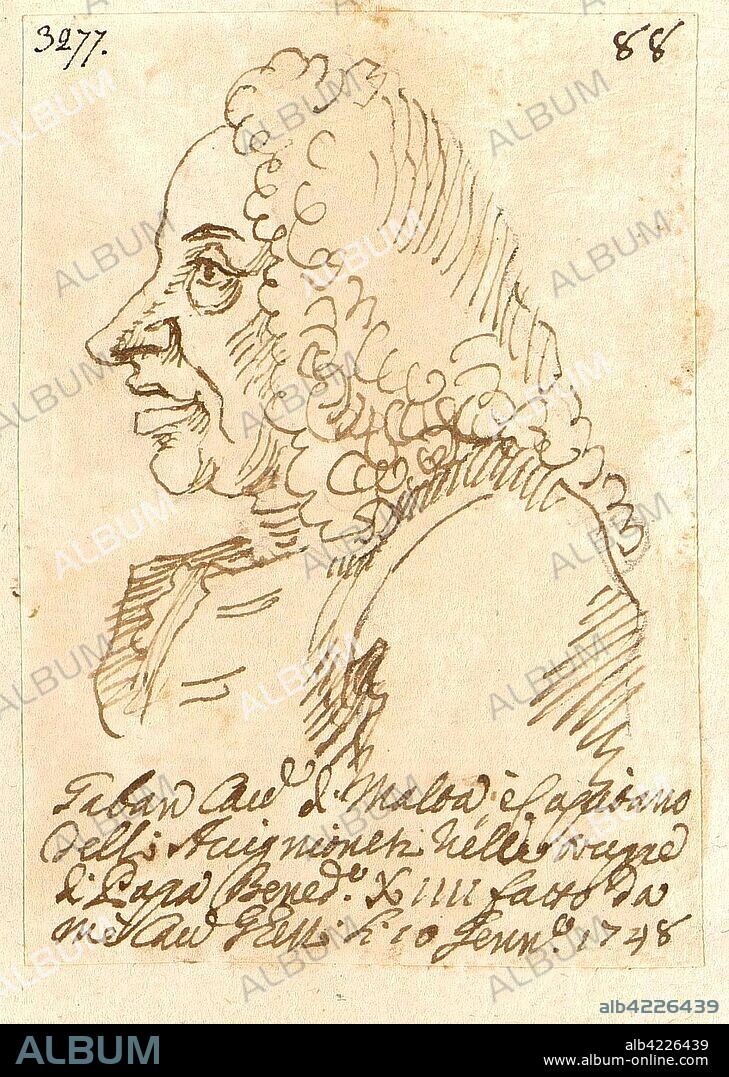 3277.
88
Gaban Cavᵉ di Malta, è Capitano
delli Avignionesi nelle truppe
di Papa Benedᵒ. XIIII fatto da
me Cavᵉ Ghezzi li 10 Jennᵒ. 1748
ALBUM
alb4226439
ALBUM
alb4226439
www.album-online.com